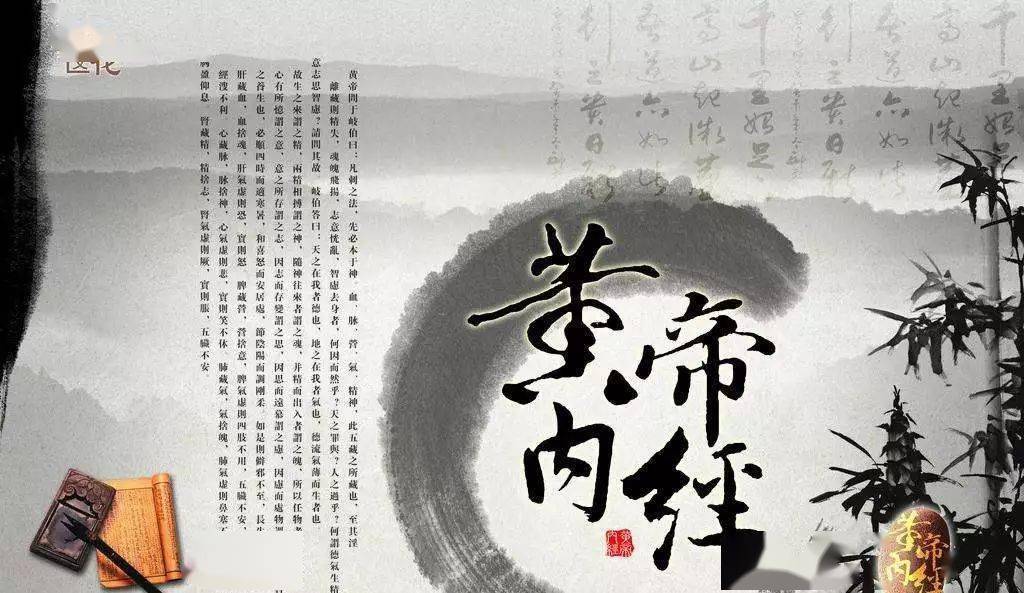 千里始足
高山起微
吾道亦如此
貴日新
黄帝問于岐伯曰:凡刺之法,先必本于神。血、脉、營、氣、精神,此五藏之所藏也,至其淫
離藏則精失,魂魄飛揚,志意恍亂,智慮去身者,何因而然乎?天之罪與?人之過乎?何謂德氣生精
意志思智慮?請問其故。岐伯答曰:天之在我者德也,地之在我者氣也,德流氣薄而生者也
故生之來謂之精,兩精相搏謂之神,隨神往來者謂之魂,并精而出入者謂之魄,所以任物者
心有所憶謂之意,意之所存謂之志,因志而存變謂之思,因思而遠慕謂之慮,因慮而處物
之養生也,必順四時而適寒暑,和喜怒而安居處,節陰陽而調剛柔,如是則僻邪不至,長生
肝藏血,血捨魂,肝氣虛則恐,實則怒。脾藏營,營捨意,脾氣虛則四肢不用,五臟不安,
經溲不利。心藏脉,脉捨神,心氣虛則悲,實則笑不休。肺藏氣,氣捨魄,肺氣虛則鼻塞
盈仰息。腎藏精,精捨志,腎氣虛則厥,實則脹,五臟不安。
黄帝
内經
黄帝
内經